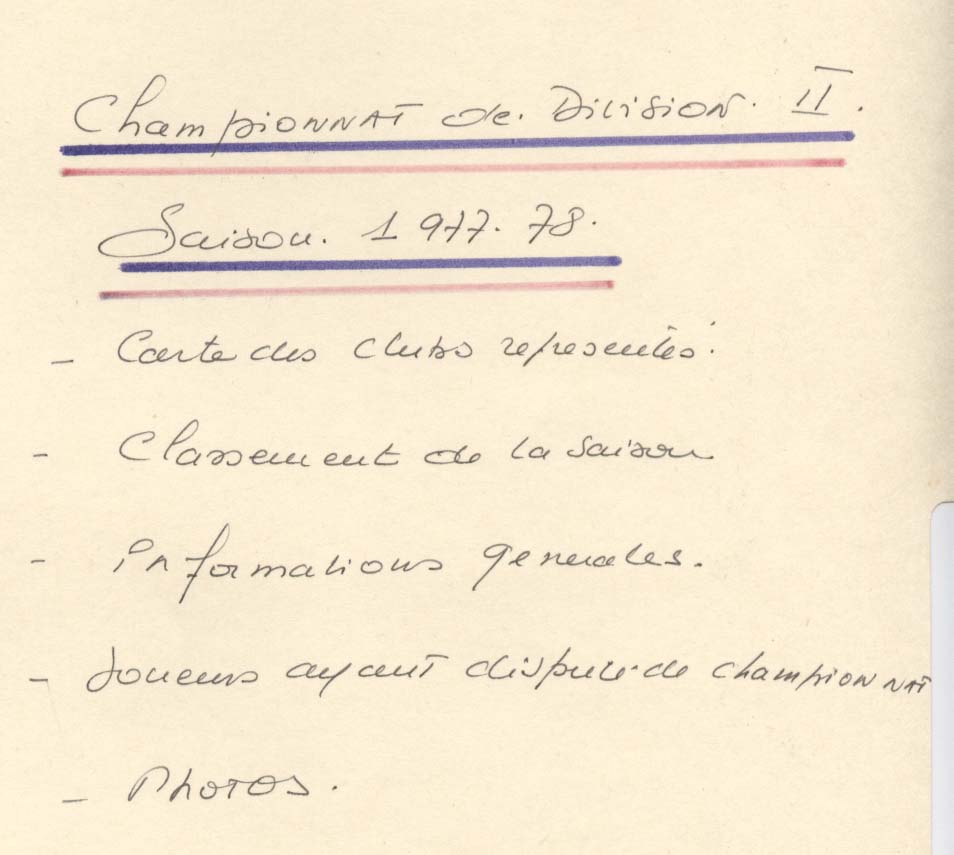 Championnat de Division II.
Saison. 1977.78.
- Carte des clubs representés.
- Classement de la saison
- informations generales.
- Joueurs ayant disputé de championnat
- Photos.